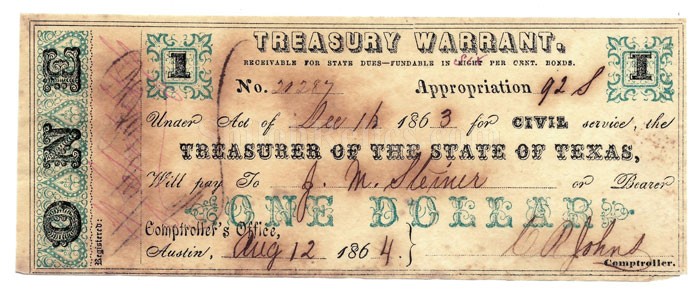 TREASURY WARRANT.
RECEIVABLE FOR STATE DUES—FUNDABLE IN EIGHT PER CENT. BONDS.
1
I
ONE
No. 20287 Appropriation 92 S
Under Act of Dec 16 1863 for CIVIL service, the
TREASURER OF THE STATE OF TEXAS,
Will pay To J. M. Steiner or Bearer
ONE DOLLAR.
Comptroller's Office,
Austin, Aug 12 1864.
Registered:
C R Johns
Comptroller.